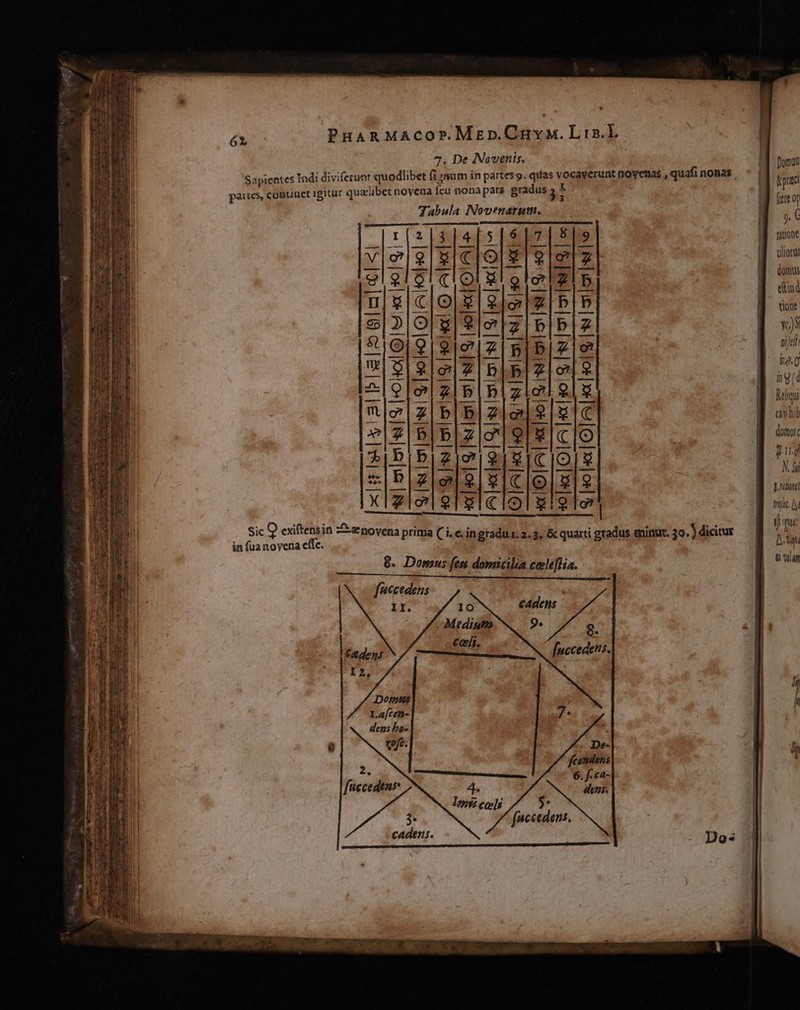 62 PHARMACOP. MED. CHYM. LIB. I.
7. De Novenis.
Sapientes Indi diviserunt quodlibet signum in partes 9. quas vocaverunt novenas, quasi nonas
partes, continet igitur quælibet novena seu nona pars gradus 3 1/3
Tabula Novenarum.
1 2 3 4 5 6 7 8 9
♈ ♂ ♀ ☿ ☾ ☉ ☿ ♀ ♂ ♃
♊ ☿ ☾ ☉ ☿ ♀ ♂ ♃ ♄ ♄
♋ ☽ ☉ ☿ ♀ ♂ ♃ ♄ ♄ ♃
♍ ☿ ♀ ♂ ♃ ♄ ♄ ♃ ♂ ♀
♎ ♀ ♂ ♃ ♄ ♄ ♃ ♂ ♀ ☿
♏ ♂ ♃ ♄ ♄ ♃ ♂ ♀ ☿ ☾
♐ ♃ ♄ ♄ ♃ ♂ ♀ ☿ ☾ ☉
♑ ♄ ♄ ♃ ♂ ♀ ☿ ☾ ☉ ☿
♒ ♄ ♃ ♂ ♀ ☿ ☾ ☉ ☿ ♀
♓ ♃ ♂ ♀ ☿ ☾ ☉ ☿ ♀ ♂
Sic ♀ existens in ♎æ novena prima ( i. e. in gradu 1. 2. 3. & quarti gradus minut. 30. ) dicitur
in sua novena esse.
8. Domus seu domicilia cœlestia.
succedens
11. 10 cadens
Medium 9. 8.
cœli. succedens.
cadens
12.
Domus
1. ascen-
dens ho-
rosc.
7.
De-
scendens
2. 6. s. ca-
succedens 4. dens.
imū cœli 5.
3. succedens.
cadens.
Do-